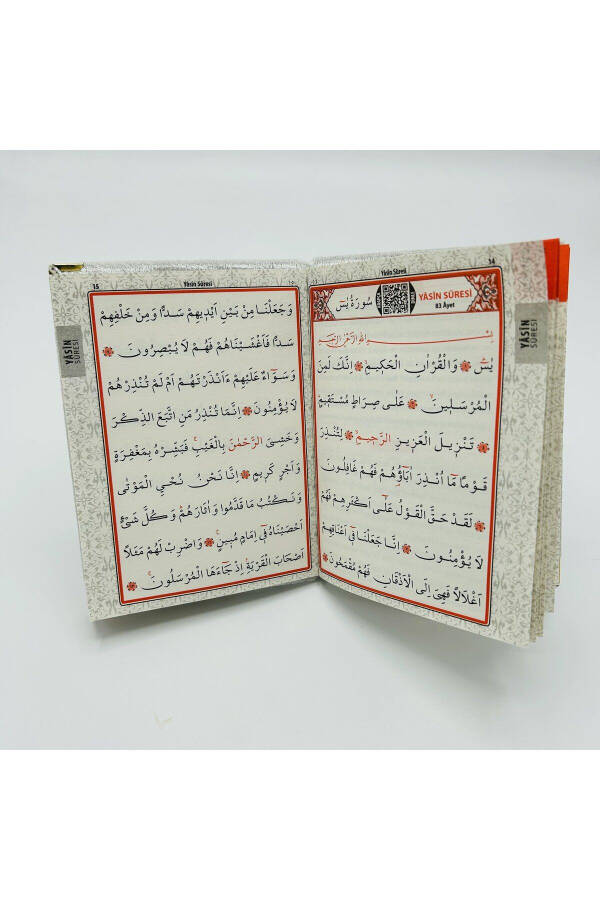 14
Yâsin Sûresi
سُورَةُ يٰسٓ
YÂSİN SÛRESİ
83 Âyet
بِسْمِ اللّٰهِ الرَّحْمٰنِ الرَّحِيمِ
يٰسٓ وَالْقُرْاٰنِ الْحَكِيمِ اِنَّكَ لَمِنَ
الْمُرْسَلِينَ عَلٰى صِرَاطٍ مُسْتَقِيمٍ
تَنْزِيلَ الْعَزِيزِ الرَّحِيمِ لِتُنْذِرَ
قَوْمًا مَٓا اُنْذِرَ اٰبَٓاؤُ۬هُمْ فَهُمْ غَافِلُونَ
لَقَدْ حَقَّ الْقَوْلُ عَلٰٓى اَكْثَرِهِمْ فَهُمْ
لَا يُؤْمِنُونَ اِنَّا جَعَلْنَا فِٓي اَعْنَاقِهِمْ
اَغْلَالًا فَهِيَ اِلَى الْاَذْقَانِ فَهُمْ مُقْمَحُونَ
YÂSİN
SÛRESİ
15
Yâsin Sûresi
وَجَعَلْنَا مِنْ بَيْنِ اَيْدِيهِمْ سَدًّا وَمِنْ خَلْفِهِمْ
سَدًّا فَاَغْشَيْنَاهُمْ فَهُمْ لَا يُبْصِرُونَ
وَسَوَٓاءٌ عَلَيْهِمْ ءَاَنْذَرْتَهُمْ اَمْ لَمْ تُنْذِرْهُمْ
لَا يُؤْمِنُونَ اِنَّمَا تُنْذِرُ مَنِ اتَّبَعَ الذِّكْرَ
وَخَشِيَ الرَّحْمٰنَ بِالْغَيْبِ فَبَشِّرْهُ بِمَغْفِرَةٍ
وَاَجْرٍ كَرِيمٍ اِنَّا نَحْنُ نُحْيِ الْمَوْتٰى
وَنَكْتُبُ مَا قَدَّمُوا وَاٰثَارَهُمْ وَكُلَّ شَيْءٍ
اَحْصَيْنَاهُ فِٓي اِمَامٍ مُبِينٍ وَاضْرِبْ لَهُمْ مَثَلًا
اَصْحَابَ الْقَرْيَةِ اِذْ جَٓاءَهَا الْمُرْسَلُونَ
YÂSİN
SÛRESİ